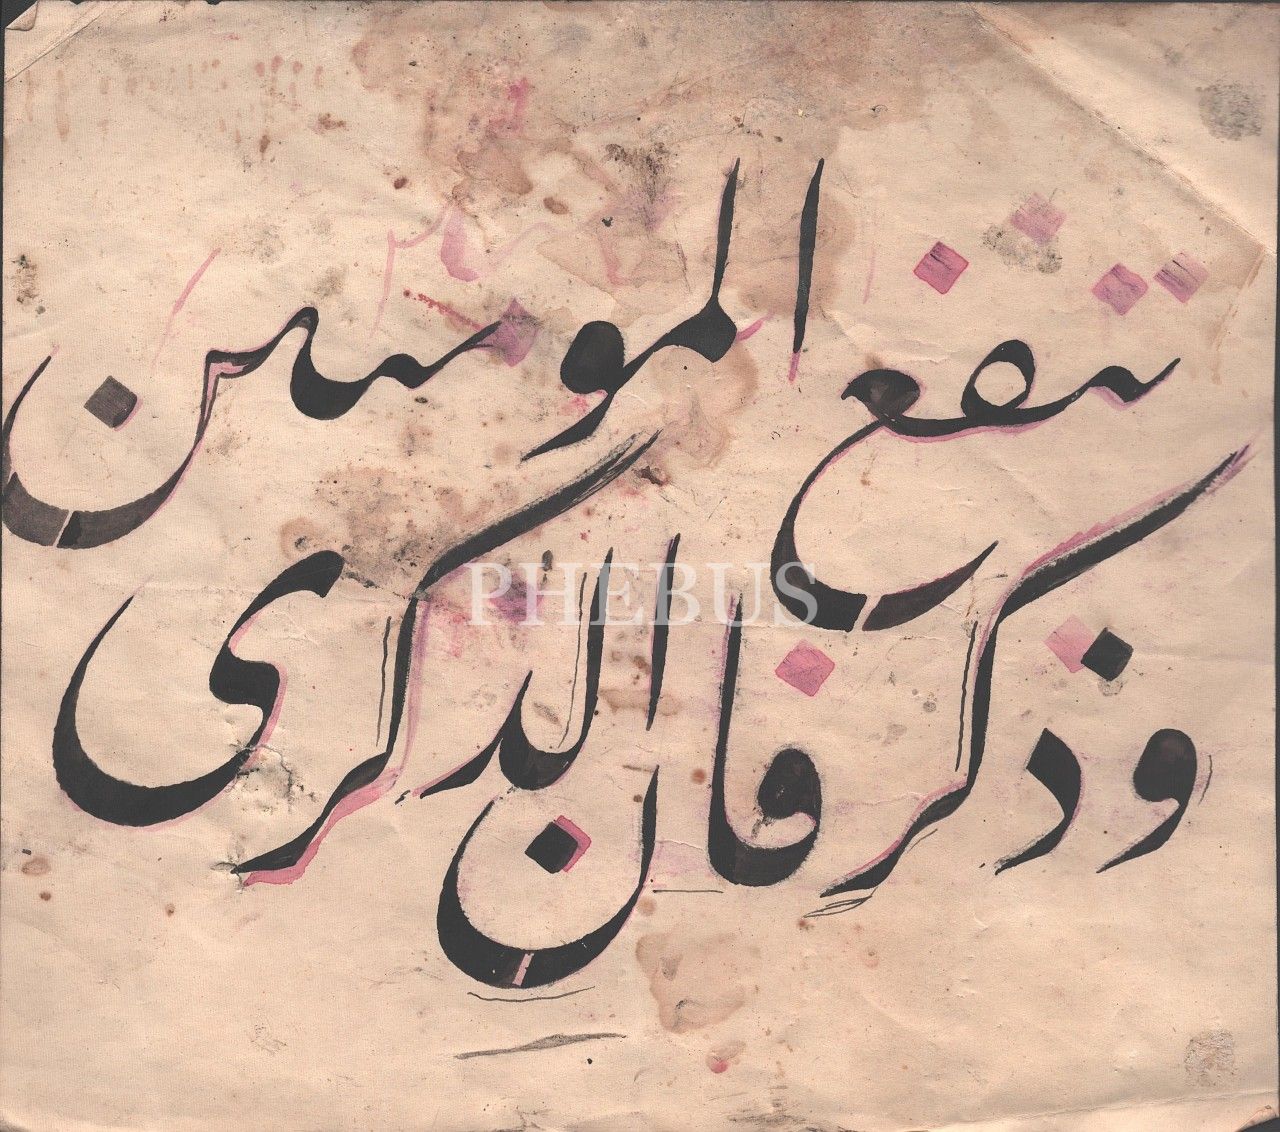 وذكر فان الذكرى
تنفع المومنين
PHEBUS